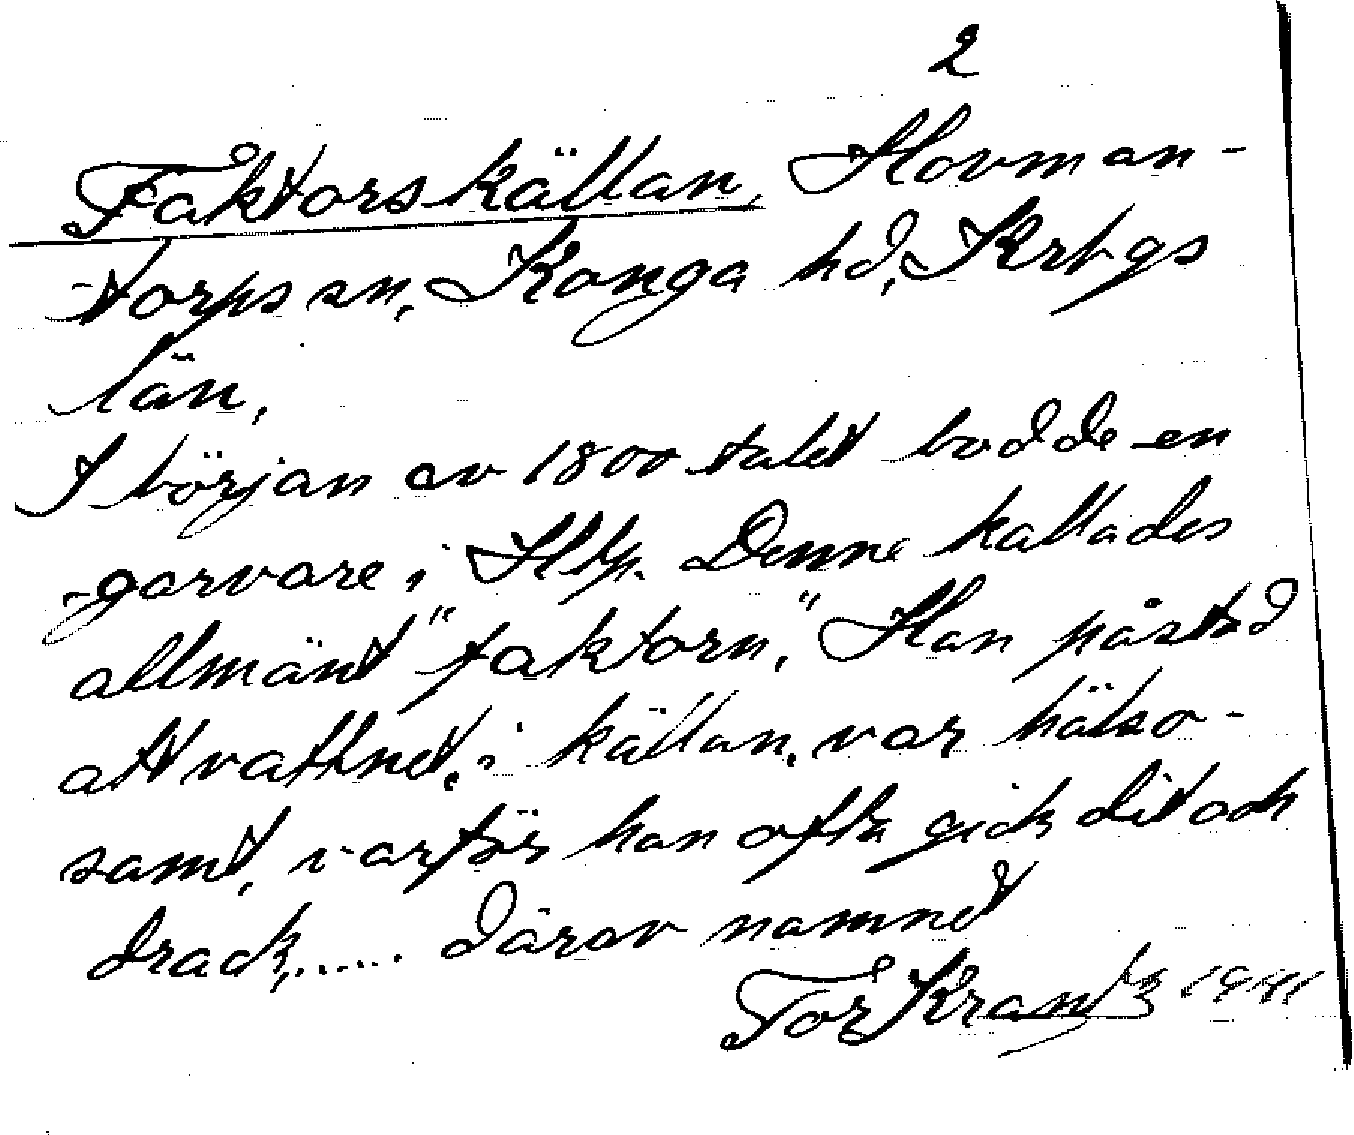 2
Faktorskällan, Hovman-
torps sn, Konga hd, Krbgs
län,
I början av 1800 talet bodde en
garvare i Htp. Denne kallades
allmänt "faktorn," Han påstod
att vattnet, i källan, var hälso-
samt, varför han ofta gick dit och
drack,..... därav namnet
Tor Krantz 1941